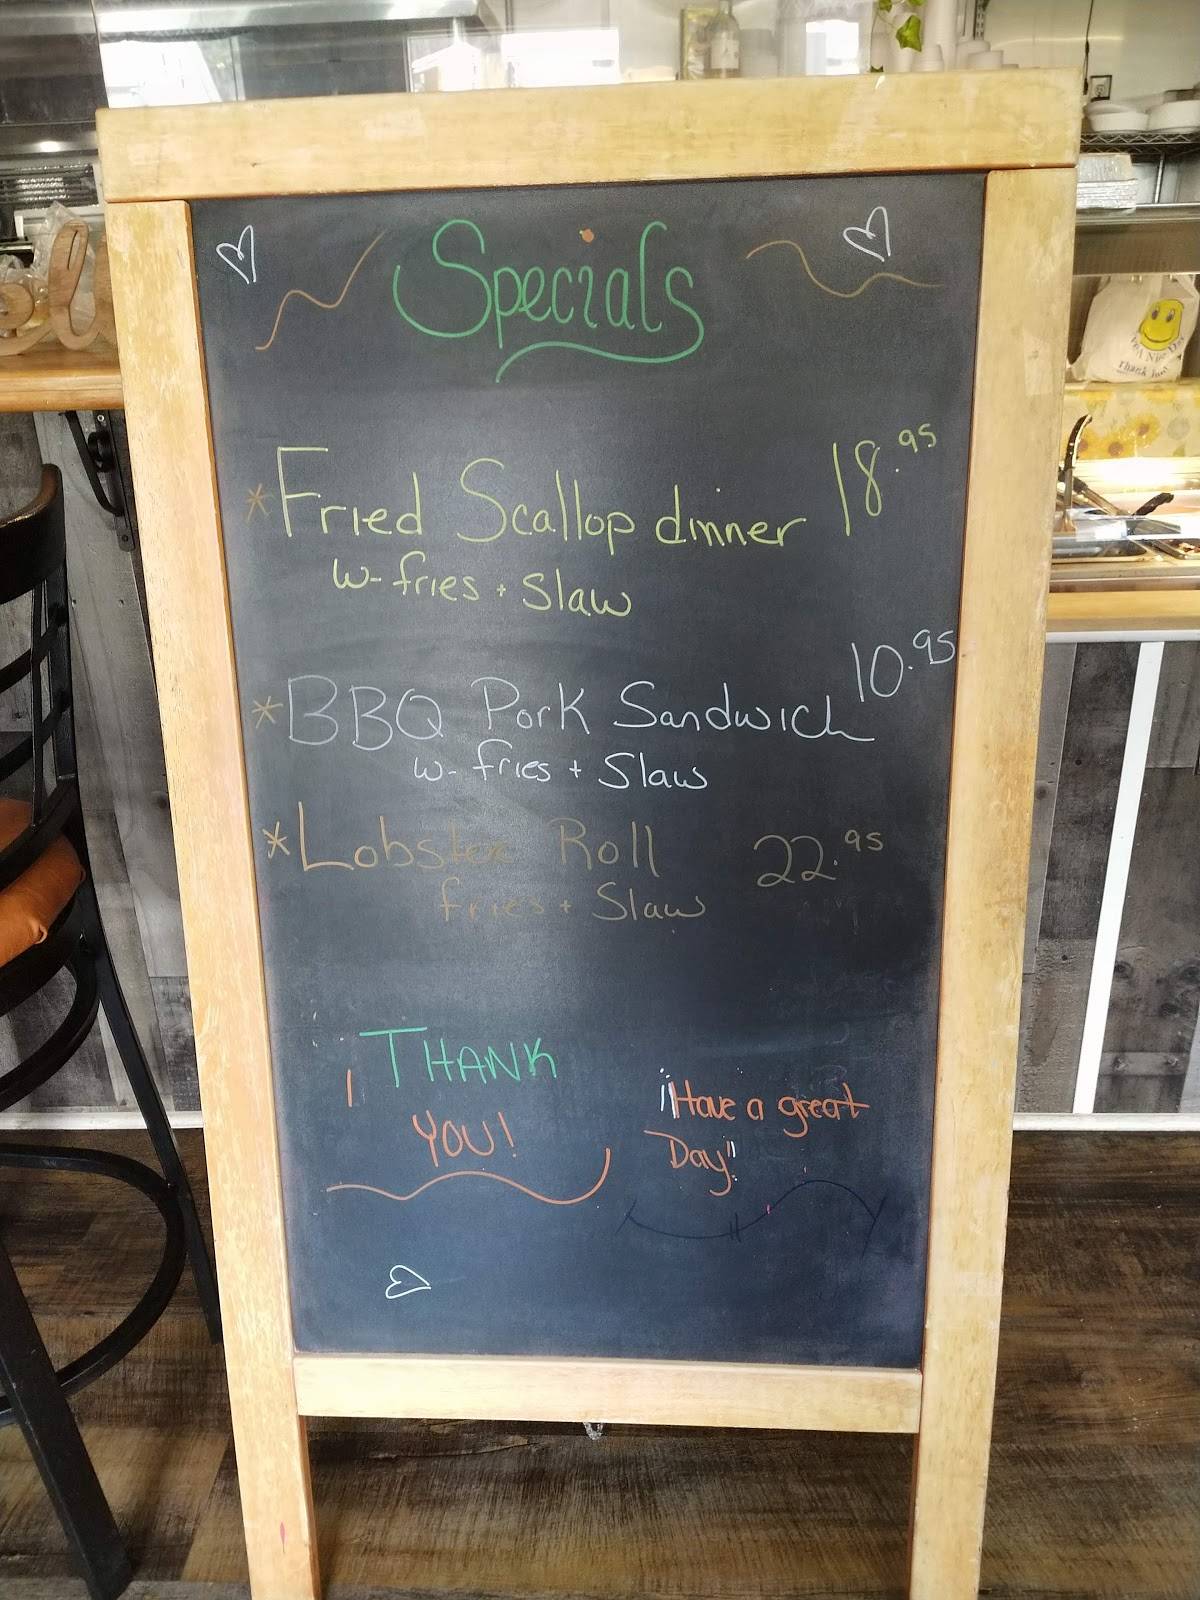 Specials
* Fried Scallop dinner 18.95
w- fries + Slaw
* BBQ Pork Sandwich 10.95
w- fries + Slaw
* Lobster Roll 22.95
fries + Slaw
THANK
YOU!
¡¡Have a great
Day!!
Have A Nice Day
Thank You!